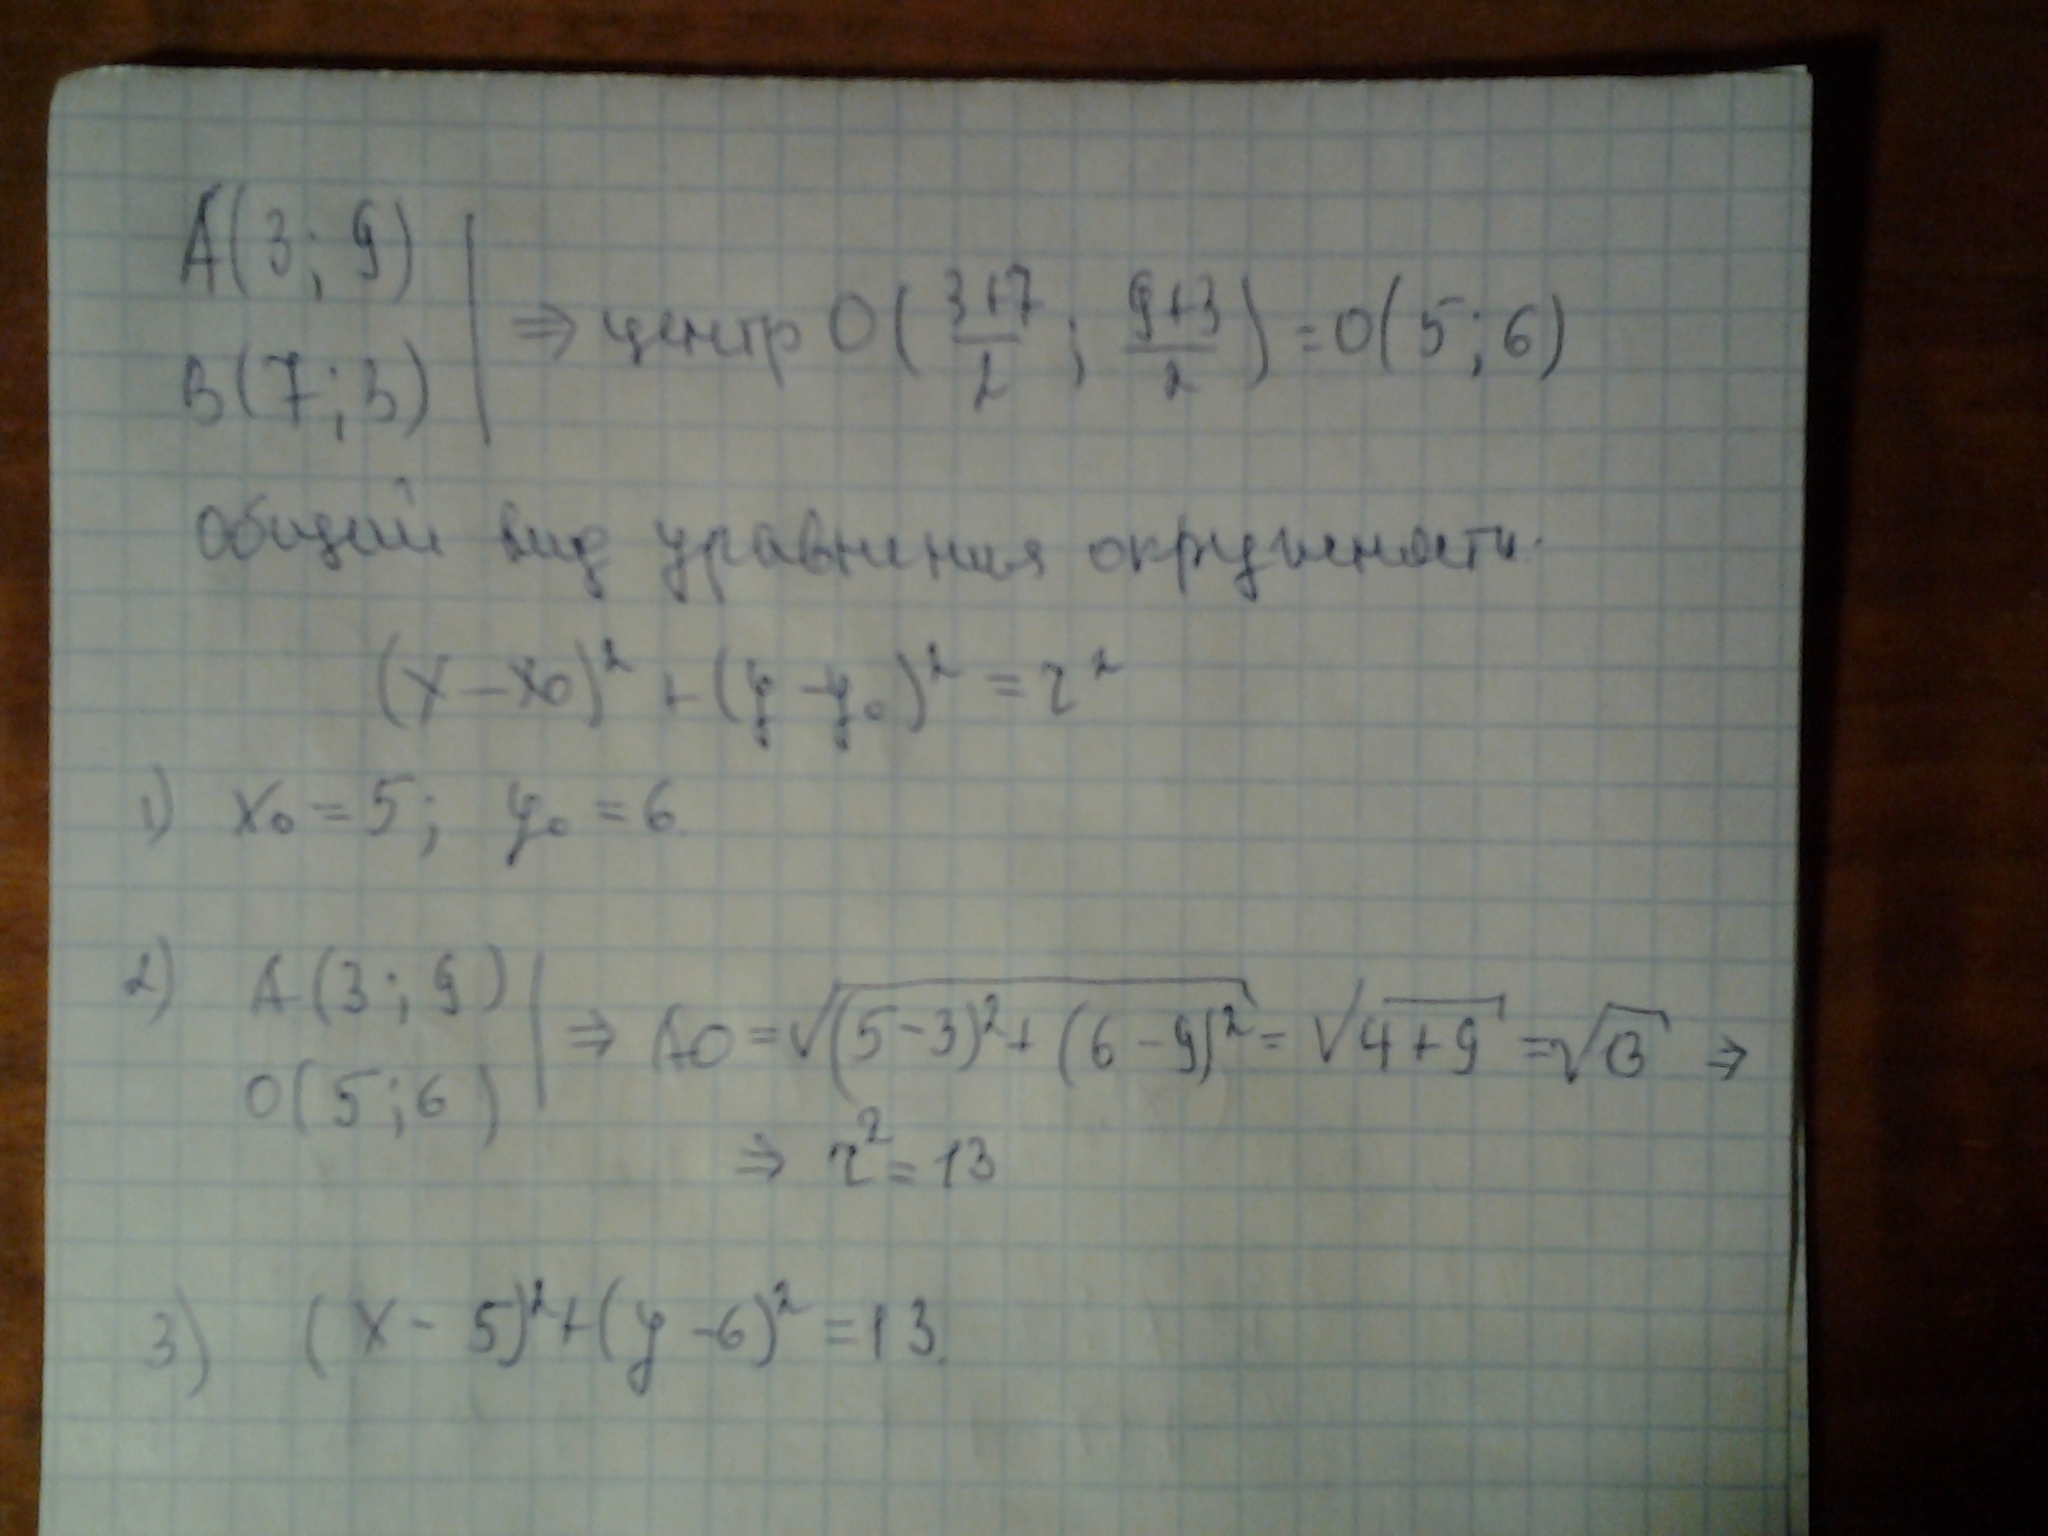 A(3; 9)
B(7; 3) ⇒ центр O((3+7)/2; (9+3)/2) = O(5; 6)
Общий вид уравнения окружности.
(x – x₀)² + (y – y₀)² = r²
1) x₀ = 5; y₀ = 6
2) A(3; 9)
O(5; 6) ⇒ AO = √((5–3)² + (6–9)²) = √(4+9) = √13 ⇒
⇒ r² = 13
3) (x – 5)² + (y – 6)² = 13.